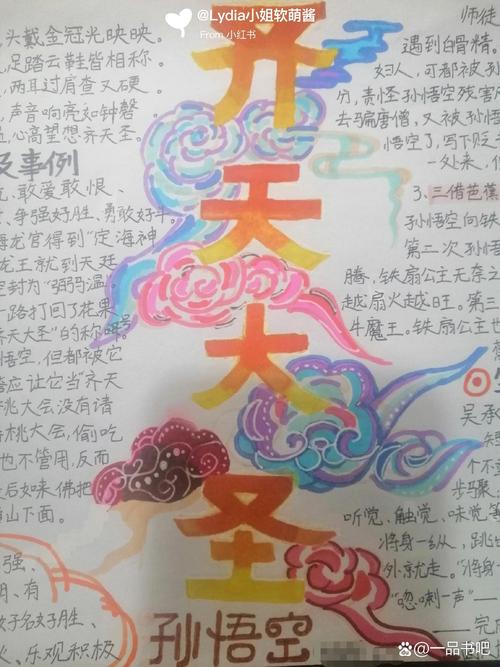 @Lydia小姐软萌酱
From 小红书
头戴金冠光映映。
足踏云鞋皆相称。
两耳过肩查又硬。
声音响亮如钟磬
心高望想齐天圣。
及事例
敢爱敢恨、
争强好胜、勇敢好斗。
海龙宫得到“定海神
龙王就到天廷
封为“弼马温”
一路打回了花果
齐天大圣”的称呼
悟空，但都被它
应让它当“齐天
蟠桃大会没有请
蟠桃大会，偷吃
也不管用，反而
最后如来佛把
山下面。
强、
明、有
争强好胜、
乐观积极
齐
天
大
圣
孙悟空
师徒
遇到白骨精。
妇人，可都被孙
分，责怪孙悟空残害
去马骗唐僧，又被孙悟
悟空了，写下贬
一处来，
3、三借芭蕉
孙悟空向铁
第二次孙悟
腾，铁扇公主无奈
越扇火越旺。第三
牛魔王。铁扇公主
吴承
短
个不
步马聚
听觉、触觉、味觉等
将身一纵，跳出
外就走。“将身一
“唿喇一声”——
完
一品书吧